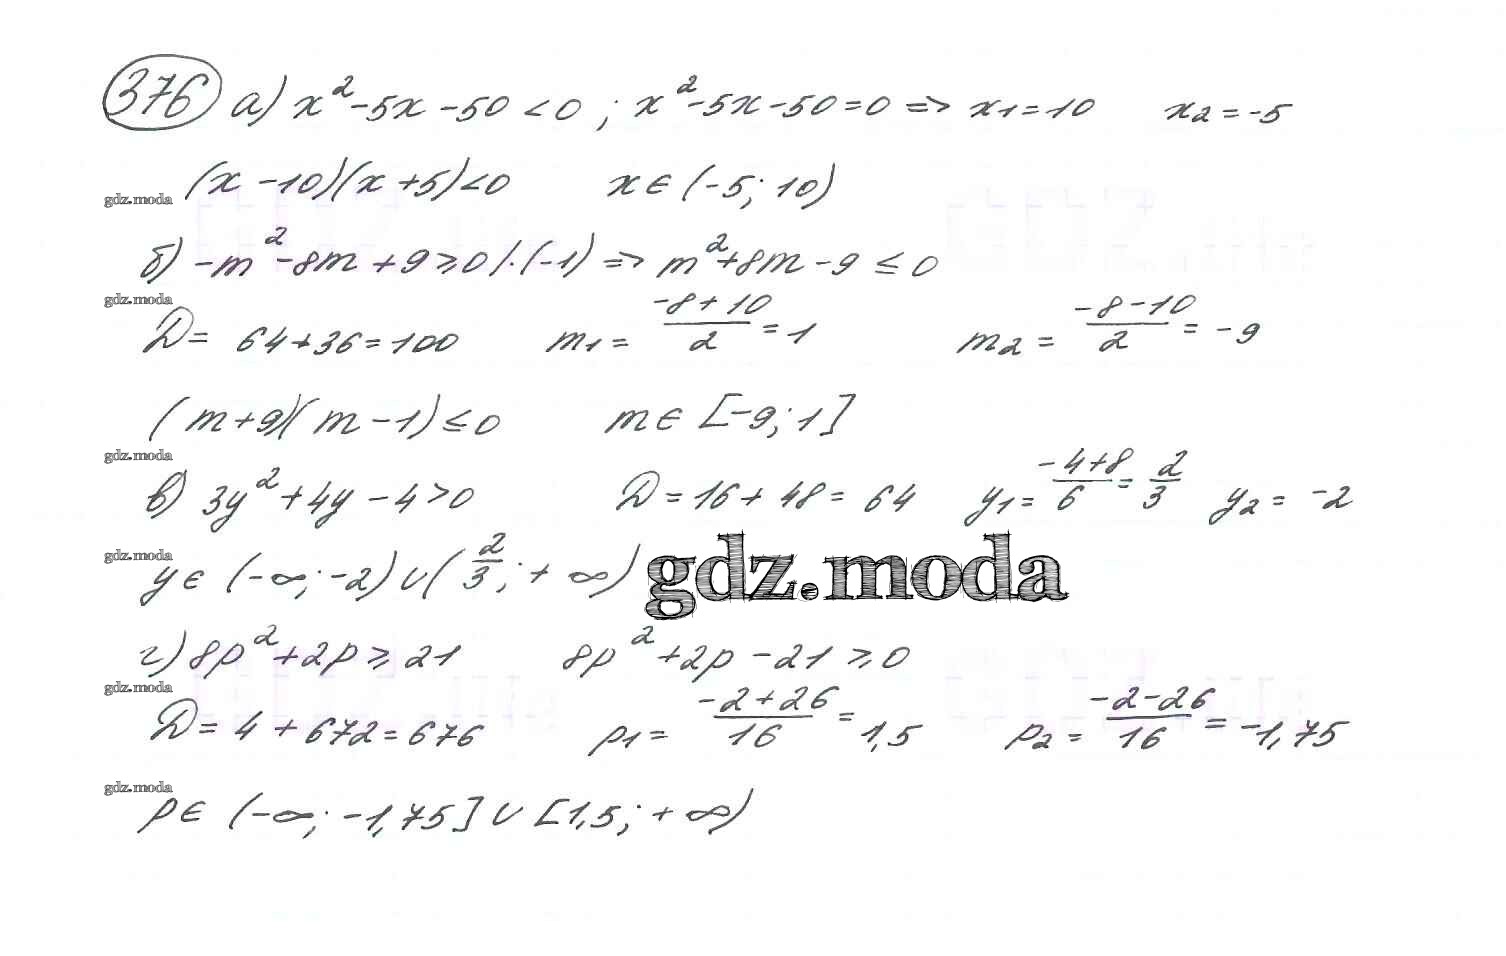 376 а) x²-5x-50<0; x²-5x-50=0 => x1=10 x2=-5
gdz.moda (x-10)(x+5)<0 x∈(-5; 10)
б) -m²-8m+9≥0 /·(-1) => m²+8m-9≤0
gdz.moda
D= 64+36=100 m1= (-8+10)/2 =1 m2= (-8-10)/2 = -9
(m+9)(m-1)≤0 m∈[-9; 1]
gdz.moda
в) 3y²+4y-4>0 D=16+48=64 y1= (-4+8)/6 = 2/3 y2= -2
gdz.moda
y∈ (-∞; -2)∪(2/3; +∞) gdz.moda
г) 8p²+2p≥21 8p²+2p-21≥0
gdz.moda
D=4+672=676 p1= (-2+26)/16 = 1,5 p2= (-2-26)/16 = -1,75
gdz.moda
p∈ (-∞; -1,75]∪[1,5; +∞)